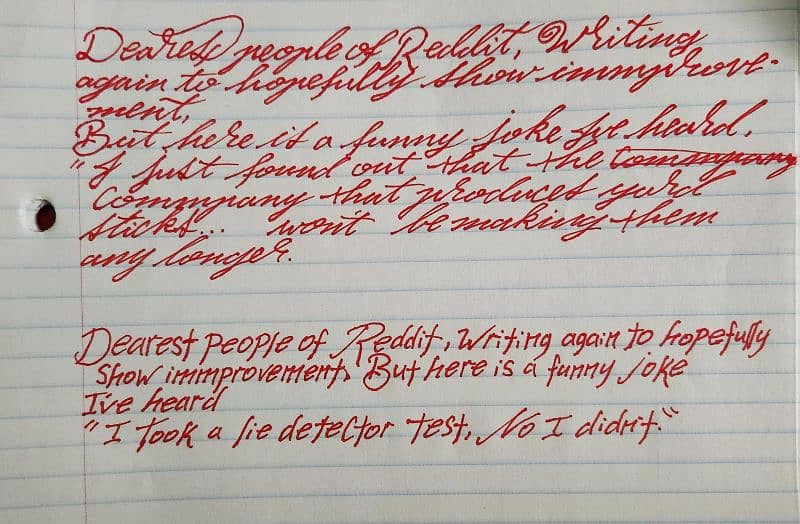 Dearest people of Reddit, Writing
again to hopefully show immprove-
ment,
But here is a funny joke I've heard.
"I just found out that the commpany
commpany that produces yard
sticks... won't be making them
any longer.
Dearest people of Reddit, Writing again to hopefully
show immprovement, But here is a funny joke
I've heard
"I Took a lie detector Test, No I didn't."